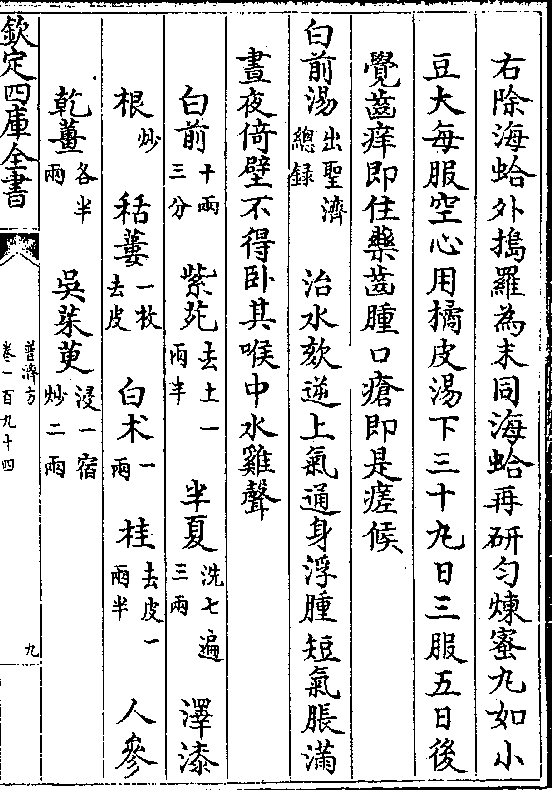 右除海蛤外搗羅為末同海蛤再研勻煉蜜丸如小
豆大每服空心用橘皮湯下三十丸日三服五日後
覺齒痒即住藥齒腫口瘡即是瘥候
白前湯出聖濟總録 治水欬逆上氣通身浮腫短氣脹滿
晝夜倚壁不得卧其喉中水雞聲
白前十兩三分 紫菀去土一兩半 半夏洗七遍三兩 澤漆
根炒 栝蔞一枚去皮 白术一兩 桂去皮一兩半 人參
乾薑各半兩 吳茱萸浸一宿炒二兩
欽定四庫全書
普濟方
卷一百九十四
九